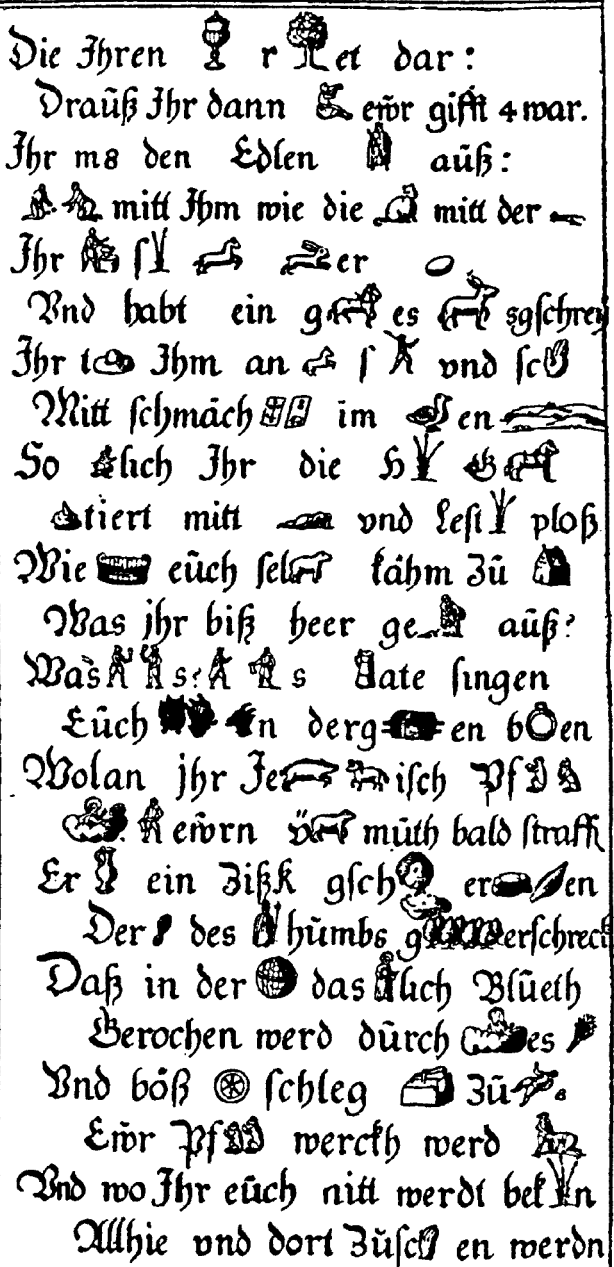 Die Ihren r et dar:
Draüß Ihr dann ewr gifft 4 war.
Ihr m8 den Edlen aüß:
mitt Ihm wie die mitt der
Ihr s er
Vnd habt ein g es sgschrey
Ihr t Ihm an s vnd sc
Mitt schmäch im en
So lich Ihr die H G
tiert mitt vnd Lest ploß
Wie eüch sel kähm Zü
Was jhr biß heer ge aüß?
Was s: s ate singen
Eüch n derg en b en
Wolan jhr Je isch Pf
ewrn ü müth bald straff
Er ein Zißk gsch er en
Der des hümbs g erschreck
Daß in der das lich Blüeth
Gerochen werd dürch es
Vnd böß schleg Zü
Ewr Pf werckh werd
Vnd wo Ihr eüch nitt werdt bek n
Allhie vnd dort Züsc en werdn